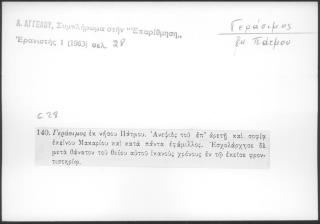 Α. ΑΓΓΕΛΟΥ, Συμπλήρωμα στὴν "Ἐπαρίθμηση„
Ἐρανιστής 1 (1963) σελ. 28
Γεράσιμος
ἐκ Πάτμου
σ. 28
140. Γεράσιμος ἐκ νήσου Πάτμου. Ἀνεψιὸς τοῦ ἐπ' ἀρετῇ καὶ σοφίᾳ
ἐκείνου Μακαρίου καὶ κατὰ πάντα ἐφάμιλλος. Ἐσχολάρχησε δὲ
μετὰ θάνατον τοῦ θείου αὐτοῦ ἱκανοὺς χρόνους ἐν τῷ ἐκεῖσε φρον-
τιστηρίῳ.